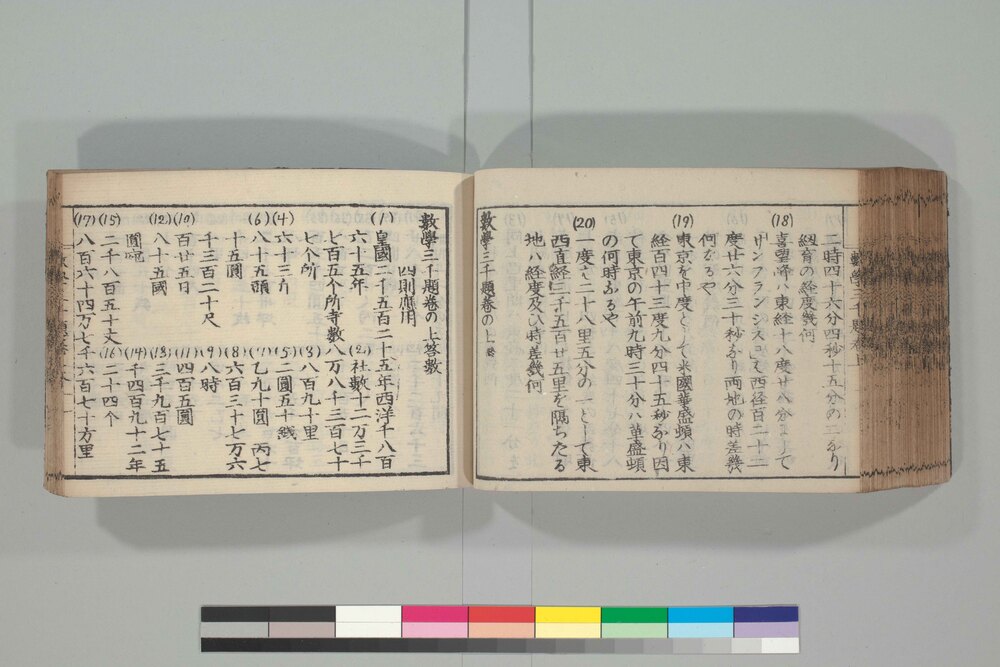 二時四十六分四秒十五分の二なり
紐育の経度幾何
(18)
喜望峰ハ東経十八度廿八分にして
サンフランシスコは西径百二十二
度廿六分三十秒なり両地の時差幾
何なるや
(19)
東京を中度として米國華盛頓ハ東
経百四十三度九分四十五秒なり因
て東京の午前九時三十分ハ華盛頓
の何時なるや
(20)
一度を二十八里五分の一として東
西直経三千五百廿五里を隔ちたる
地ハ経度及ひ時差幾何
數學三千題巻の上終
數學三千題巻の上答數
四則應用
(1)
皇國二千五百二十五年西洋千八百
六十五年
(2)
社數十二万三千
七百五个所寺數八万八千三百七十
七个所
(3)
八百九十里
(4)
六十三方
(5)
二圓五十銭
(6)
八十五頭
(7)
乙九十圓 丙七
十五圓
(8)
六百三十七万六
千三百二十尺
(9)
八時
(10)
百廿五日
(11)
四百五圓
(12)
八十五國
(13)
三千九百七十五
圓
(14)
千四百九十二年
(15)
二千八百五十丈
(16)
二十四个
(17)
八百六十四万七千六百七十方里